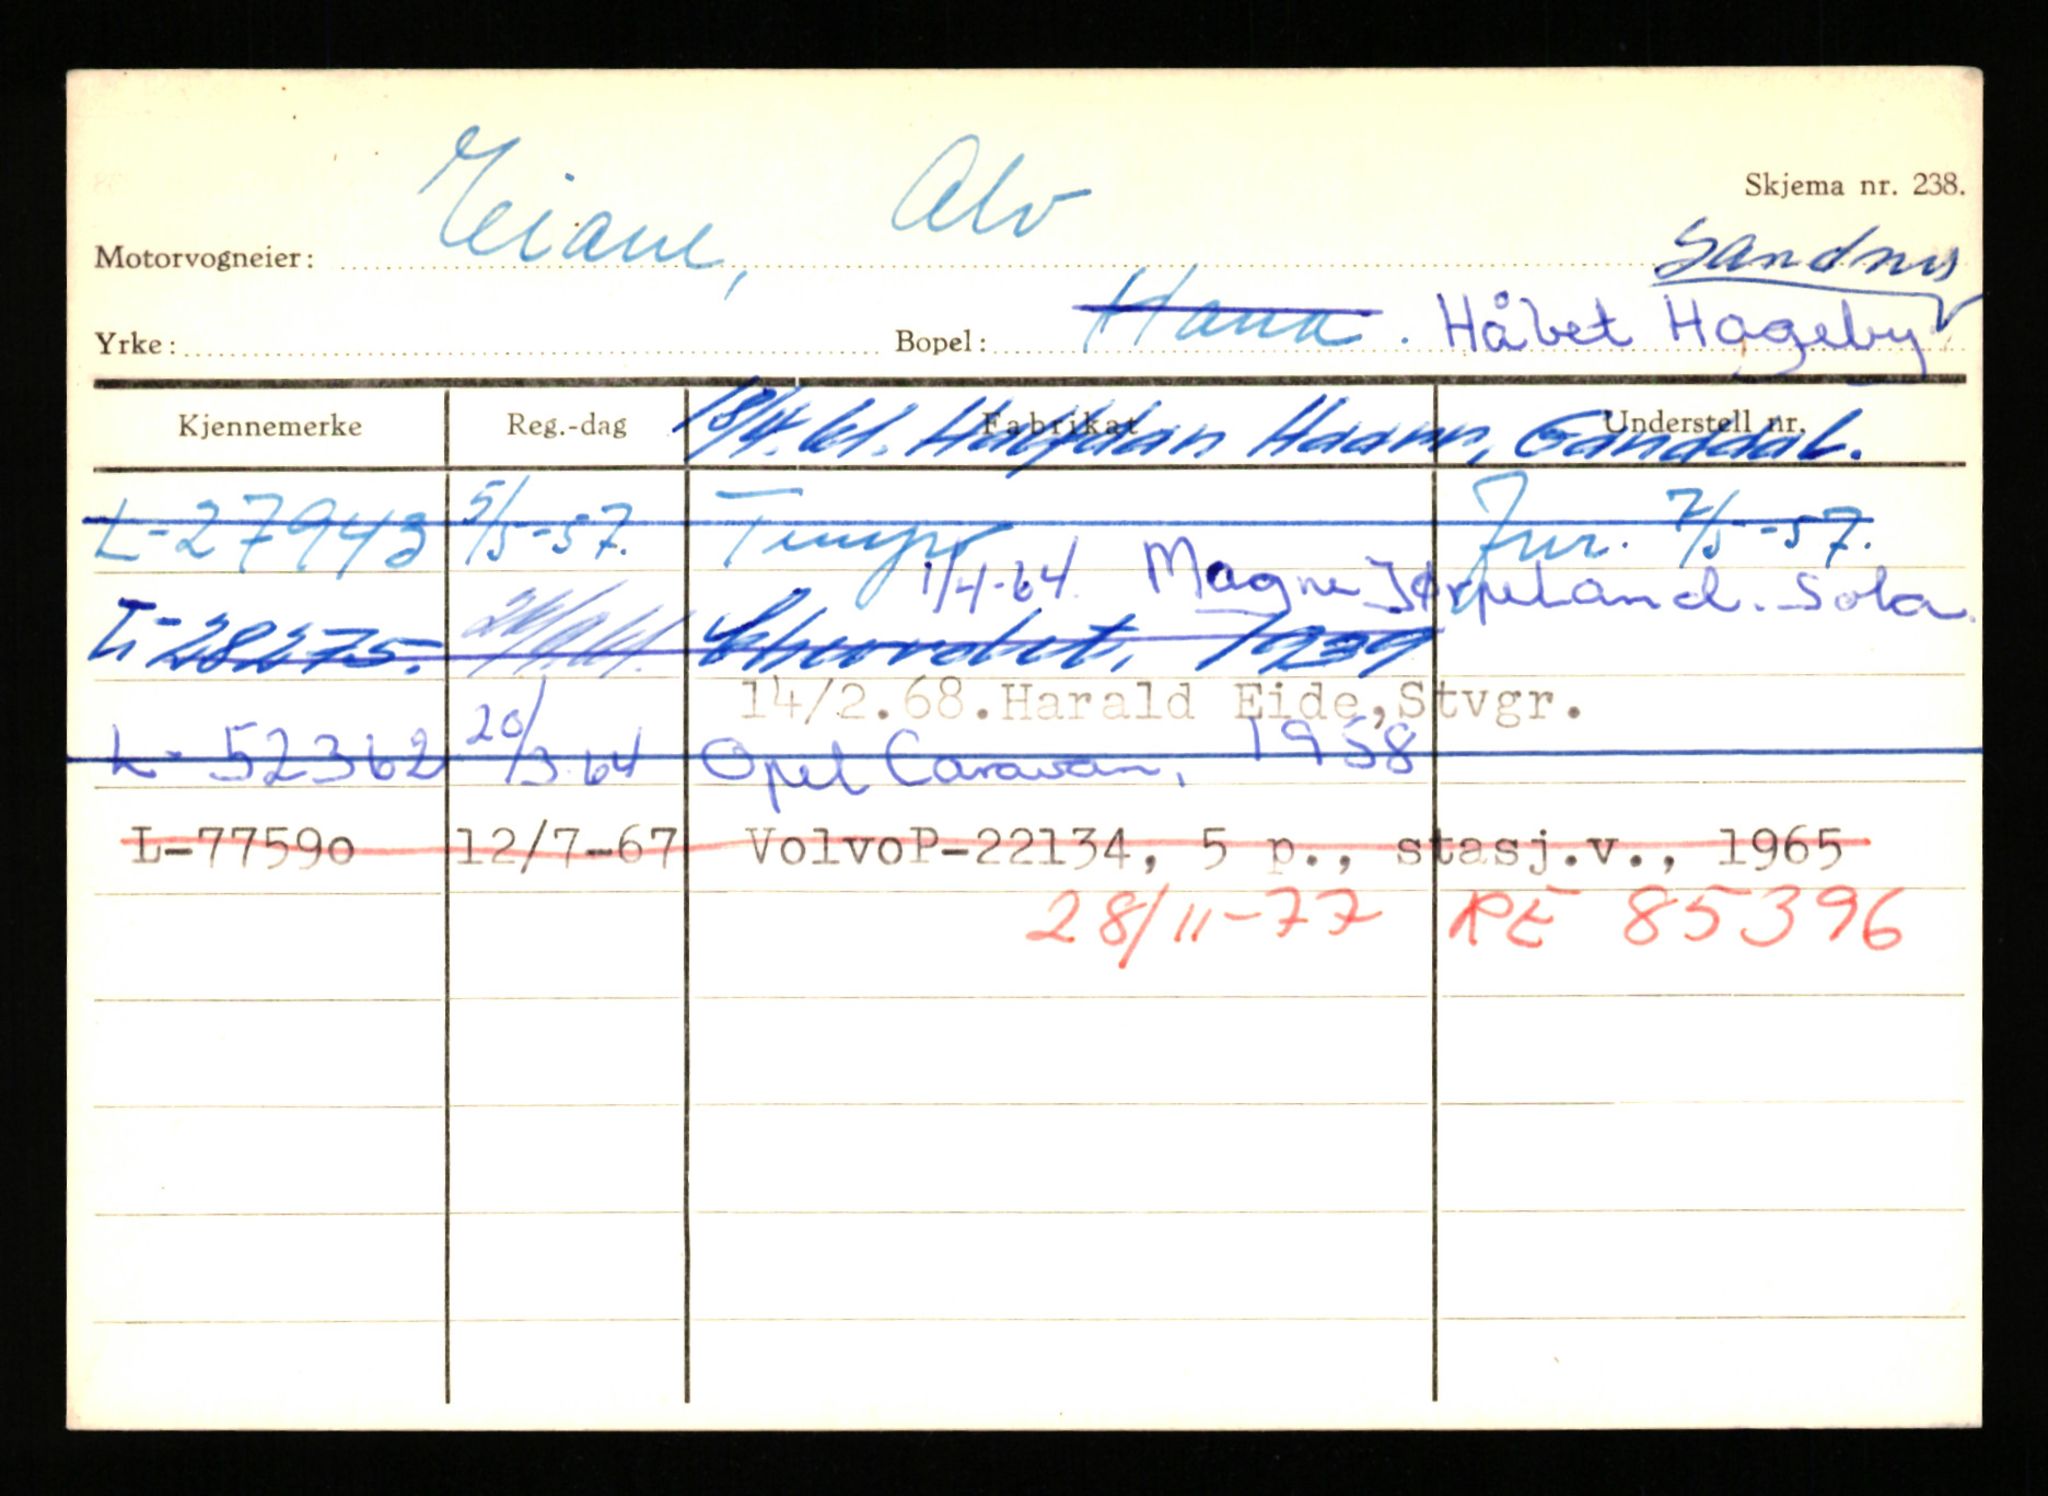 Skjema nr. 238.
Motorvogneier: Eiane, Alv
Sandnes
Yrke: Bopel: Hana. Håbet Hageby
Kjennemerke Reg.-dag Fabrikat Understell nr.
18/4.61. Halfdan Haann, Ganddal.
L-27943 5/5-57. Tempo Jnr. 7/5-57.
1/4-64 Magne Jørpeland. Sola
L-28275. Chevrolet, 1939
14/2.68.Harald Eide,Stvgr.
L-52362 20/3.64 Opel Caravan, 1958
L-7759o 12/7-67 VolvoP-22134, 5 p., stasj.v., 1965
28/11-77 RE 85396